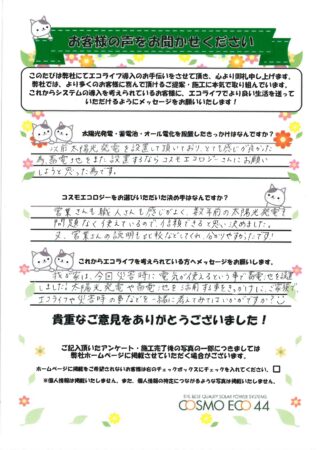 お客様の声をお聞かせください
このたびは弊社にてエコライフ導入のお手伝いをさせて頂き、心より御礼申し上げます。
弊社では、より多くのお客様に喜んで頂けるご提案・施工に本気で取り組んでいます。
これからシステムの導入を考えられているお客様に、エコライフでより良い生活を送って
いただけるようにメッセージをお願いします！
太陽光発電・蓄電池・オール電化を設置したきっかけはなんですか？
以前太陽光発電を設置して頂いており、とても感じが良かった
為、蓄電池をまた設置するならコスモエコロジーさんにお願い
しようと思った為です。
コスモエコロジーをお選びいただいた決め手はなんですか？
営業さんも職人さんも感じがよく、数年前の太陽光発電も
問題なく使えているので、信頼できると思い決めました。
又、営業さんの説明も
これからエコライフを考えている方へメッセージをお願いします。
我が家は、今回災害時に電気が使えるという事で蓄電池を設置
しました。太陽光発電や蓄電池を活用する事をきっかけに、ご家族で
エコライフや災害時の事などを一緒に考えてみてはいかがですか？
貴重なご意見をありがとうございました！
ご記入頂いたアンケート・施工完了後の写真の一部につきましては
弊社ホームページに掲載させていただく場合がございます。
ホームページに掲載をご希望されないお客様は右のチェックボックスにチェックを入れてください。
※個人情報は掲載いたしません、また、個人情報の特定につながるような写真は掲載いたしません。
THE BEST QUALITY SOLAR POWER SYSTEMS
COSMO ECO 44